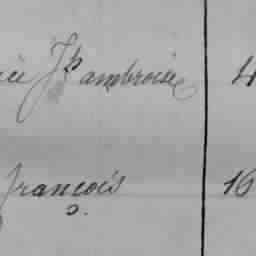 Jh ambroise 4
françois 16